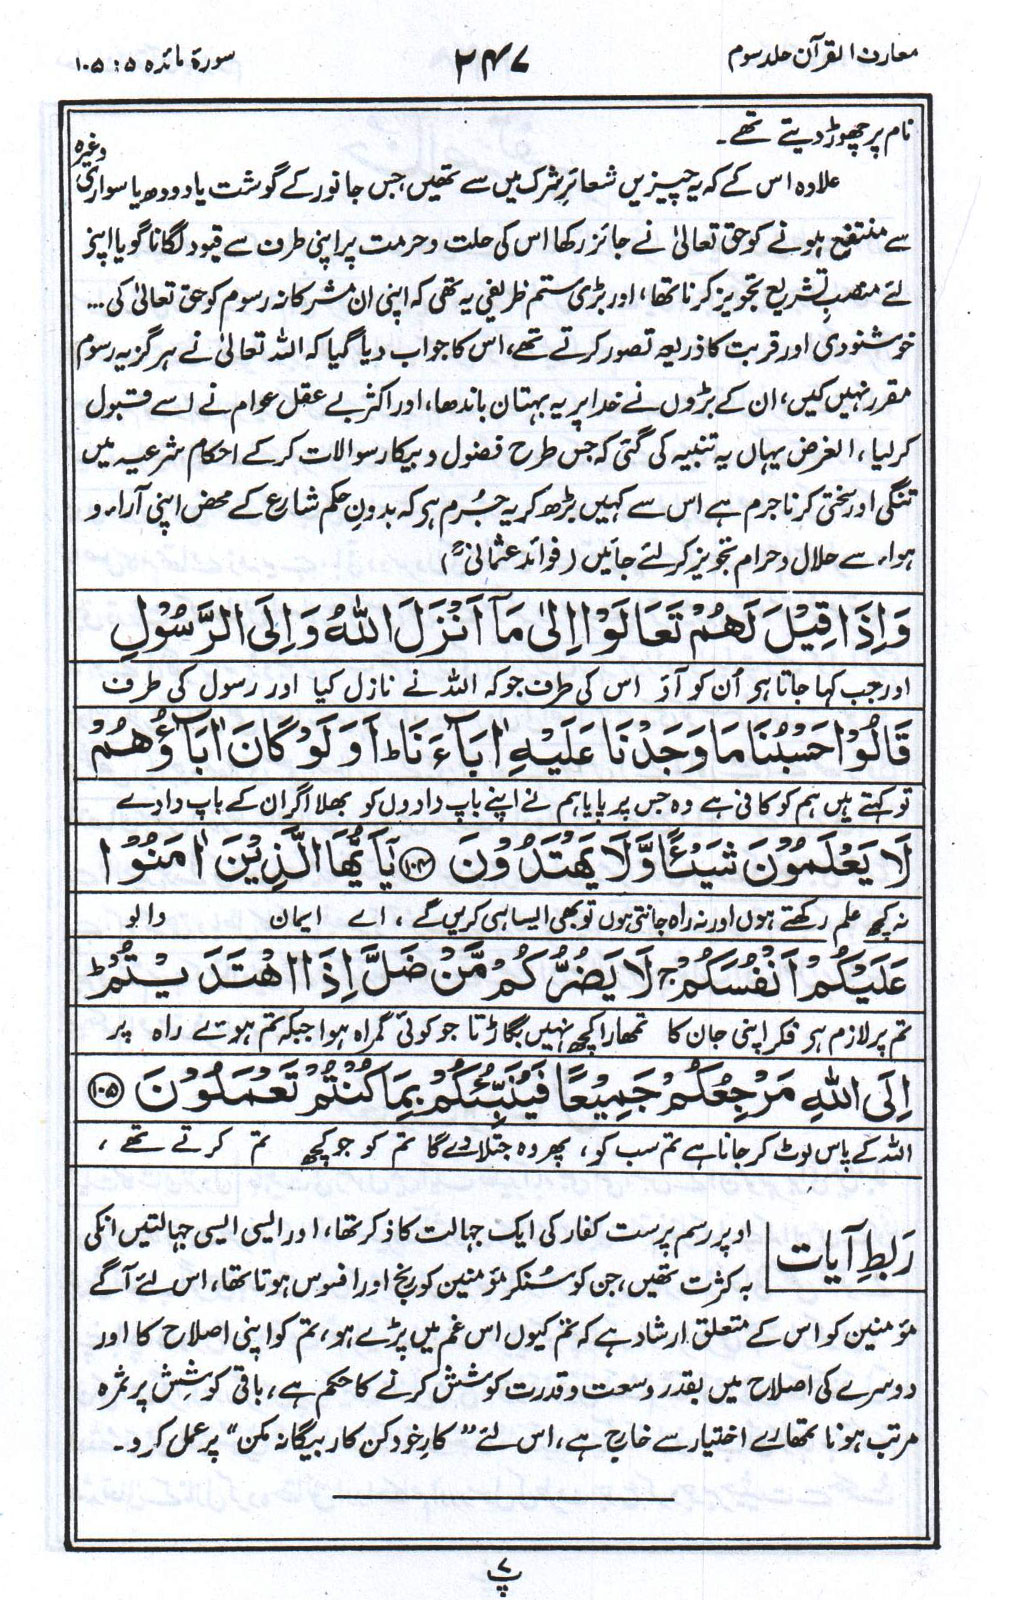 معارف القرآن جلد سوم
۲۴۷
سورۃ مائدہ ۵: ۱۰۵
نام پر چھوڑ دیتے تھے۔
علاوہ اس کے کہ یہ چیزیں شعائرِ شرک میں سے تھیں، جس جانور کے گوشت یا دودھ یا سواری وغیرہ
سے منتفع ہونے کو حق تعالیٰ نے جائز رکھا اس کی حلت و حرمت پر اپنی طرف سے قیود لگانا گویا اپنے
لئے منصبِ تشریع تجویز کرنا تھا، اور بڑی ستم ظریفی یہ تھی کہ اپنی ان مشرکانہ رسوم کو حق تعالیٰ کی...
خوشنودی اور قربت کا ذریعہ تصور کرتے تھے، اس کا جواب دیا گیا کہ اللہ تعالیٰ نے ہرگز یہ رسوم
مقرر نہیں کیں، ان کے بڑوں نے خدا پر یہ بہتان باندھا، اور اکثر بے عقل عوام نے اسے قبول
کرلیا، الغرض یہاں یہ تنبیہ کی گئی کہ جس طرح فضول و بیکار سوالات کرکے احکام شرعیہ میں
تنگی اور سختی کرنا جرم ہے اس سے کہیں بڑھ کر یہ جُرم ہر کہ بدونِ حکم شارع کے محض اپنی آراء و
ہواء سے حلال و حرام تجویز کرلئے جائیں (فوائد عثمانیؒ)
وَاِذَا قِيْلَ لَهُمْ تَعَالَوْا اِلٰى مَآ اَنْزَلَ اللّٰهُ وَاِلَى الرَّسُوْلِ
اور جب کہا جاتا ہر اُن کو آؤ اس کی طرف جو کہ اللہ نے نازل کیا اور رسول کی طرف
قَالُوْا حَسْبُنَا مَا وَجَدْنَا عَلَيْهِ اٰبَآءَنَا ط اَوَلَوْ كَانَ اٰبَآؤُهُمْ
تو کہتے ہیں ہم کو کافی ہے وہ جس پر پایا ہم نے اپنے باپ دادوں کو بھلا اگر ان کے باپ دادے
لَا يَعْلَمُوْنَ شَيْئًا وَّلَا يَهْتَدُوْنَ ﴿۱۰۴﴾ يٰٓاَيُّهَا الَّذِيْنَ اٰمَنُوْا
نہ کچھ علم رکھتے ہوں اور نہ راہ جانتے ہوں تو بھی ایسا ہی کریں گے، اے ایمان والو
عَلَيْكُمْ اَنْفُسَكُمْ ج لَا يَضُرُّكُمْ مَّنْ ضَلَّ اِذَا اهْتَدَيْتُمْ ط
تم پر لازم ہر فکر اپنی جان کا تمھارا کچھ نہیں بگاڑتا جو کوئی گمراہ ہوا جبکہ تم ہوئے راہ پر
اِلَى اللّٰهِ مَرْجِعُكُمْ جَمِيْعًا فَيُنَبِّئُكُمْ بِمَا كُنْتُمْ تَعْمَلُوْنَ ﴿۱۰۵﴾
اللہ کے پاس لوٹ کر جانا ہے تم سب کو، پھر وہ جتلا دے گا تم کو جو کچھ تم کرتے تھے،
ربطِ آیات
اوپر رسم پرست کفار کی ایک جہالت کا ذکر تھا، اور ایسی ایسی جہالتیں انکی
بہ کثرت تھیں، جن کو سُنکر مؤمنین کو رنج اور افسوس ہوتا تھا، اس لئے آگے
مؤمنین کو اس کے متعلق ارشاد ہے کہ تم کیوں اس غم میں پڑے ہو، تم کو اپنی اصلاح کا اور
دوسرے کی اصلاح میں بقدر وسعت و قدرت کوشش کرنے کا حکم ہے، باقی کوشش پر ثمرہ
مرتب ہونا تمھارے اختیار سے خارج ہے، اس لئے ”کارِ خود کن کارِ بیگانہ مکن“ پر عمل کرو۔